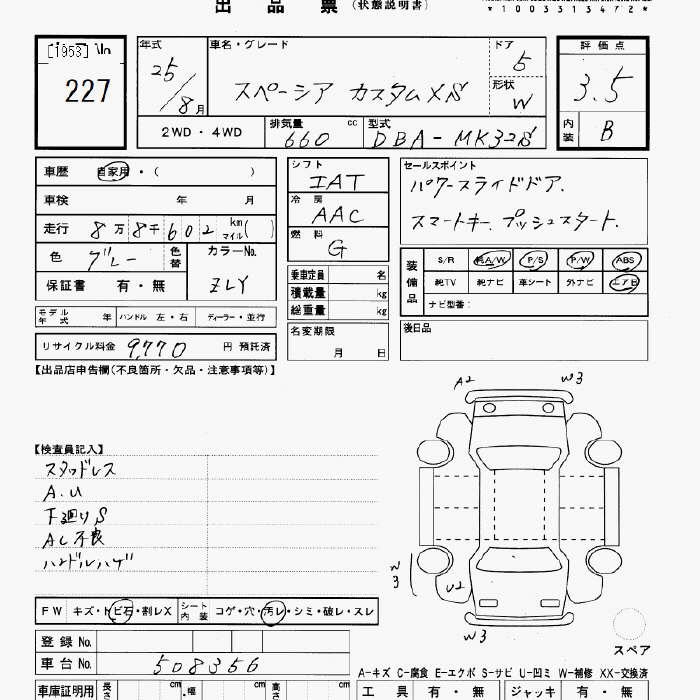 出 品 票 (状態説明書)
*1003313472*
[1953]
227
年式
25/8月
車名・グレード
スペーシア カスタムXS
ドア
5
形状
W
評価点
3.5
内装
B
2WD・4WD
排気量
660 cc
型式
DBA-MK32S
車歴 自家用・( )
車検 年 月
走行 8万8千602 km マイル( )
色 グレー 色替
カラーNo.
ZLY
保証書 有・無
モデル年式 年 ハンドル 左・右 ディーラー・並行
リサイクル料金 9,770 円 預託済
シフト
IAT
冷房
AAC
燃料
G
乗車定員 名
積載量 kg
総重量 kg
名変期限
月 日
セールスポイント
パワースライドドア.
スマートキー. プッシュスタート.
装備品
S/R 純A/W P/S P/W ABS
純TV 純ナビ 革シート 外ナビ エアB
ナビ型番:
後日品
【出品店申告欄(不良箇所・欠品・注意事項等)】
A2 W3
【検査員記入】
スタッドレス
A.U
下廻りS
AC不良
ハンドルハゲ
W3
U2
W3
スペア
FW キズ・トビ石・割レX シート内装 コゲ・穴・汚レ・シミ・破レ・スレ
登録 No.
車台 No. 508356
A-キズ C-腐食 E-エクボ S-サビ U-凹ミ W-補修 XX-交換済
車庫証明用 長さ cm ・幅 cm 高さ cm
工具 有・無 ジャッキ 有・無